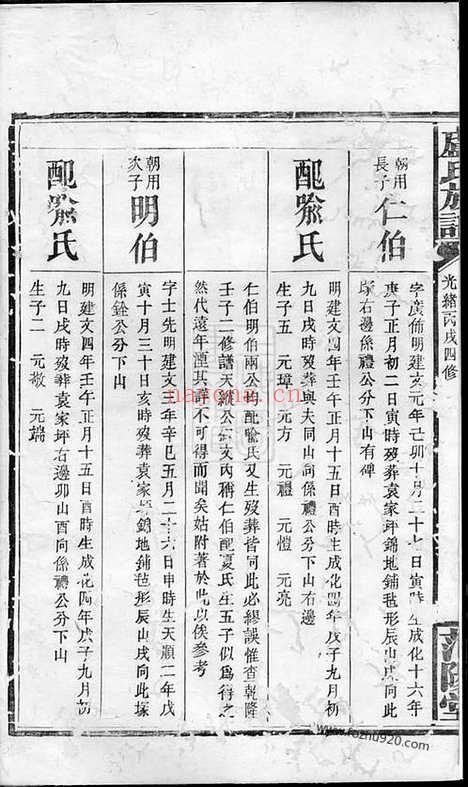 盧氏族譜
光緒丙戌四修
范陽堂
朝用
長子
仁伯
字廣佈明建文元年己卯十月二十七日寅時生成化十六年
庚子正月初二日寅時歿葬袁家坪錦地鋪毡形辰山戌向此
塚右邊係禮公分下山有碑
配喩氏
明建文四年壬午正月十五日酉時生成化四年戊子九月初
九日戌時歿葬與夫同山向係禮公分下山右邊
生子五 元璋 元方 元禮 元愷 元亮
仁伯明伯兩公俱配喩氏又生歿葬皆同此必繆誤惟查乾隆
壬子二修譜天錫公序文內稱仁伯配夏氏生五子似為得之
然代遠年湮其詳不可得而聞矣姑附著於此以俟參考
朝用
次子
明伯
字士先明建文三年辛巳五月二十六日申時生天順二年戊
寅十月三十日亥時歿葬袁家坪錦地鋪毡形辰山戌向此塚
係銓公分下山
配喩氏
明建文四年壬午正月十五日酉時生成化四年戊子九月初
九日戌時歿葬袁家坪右邊卯山酉向係禮公分下山
生子二 元敬 元端
nayona.cn
www.fozhu920.com